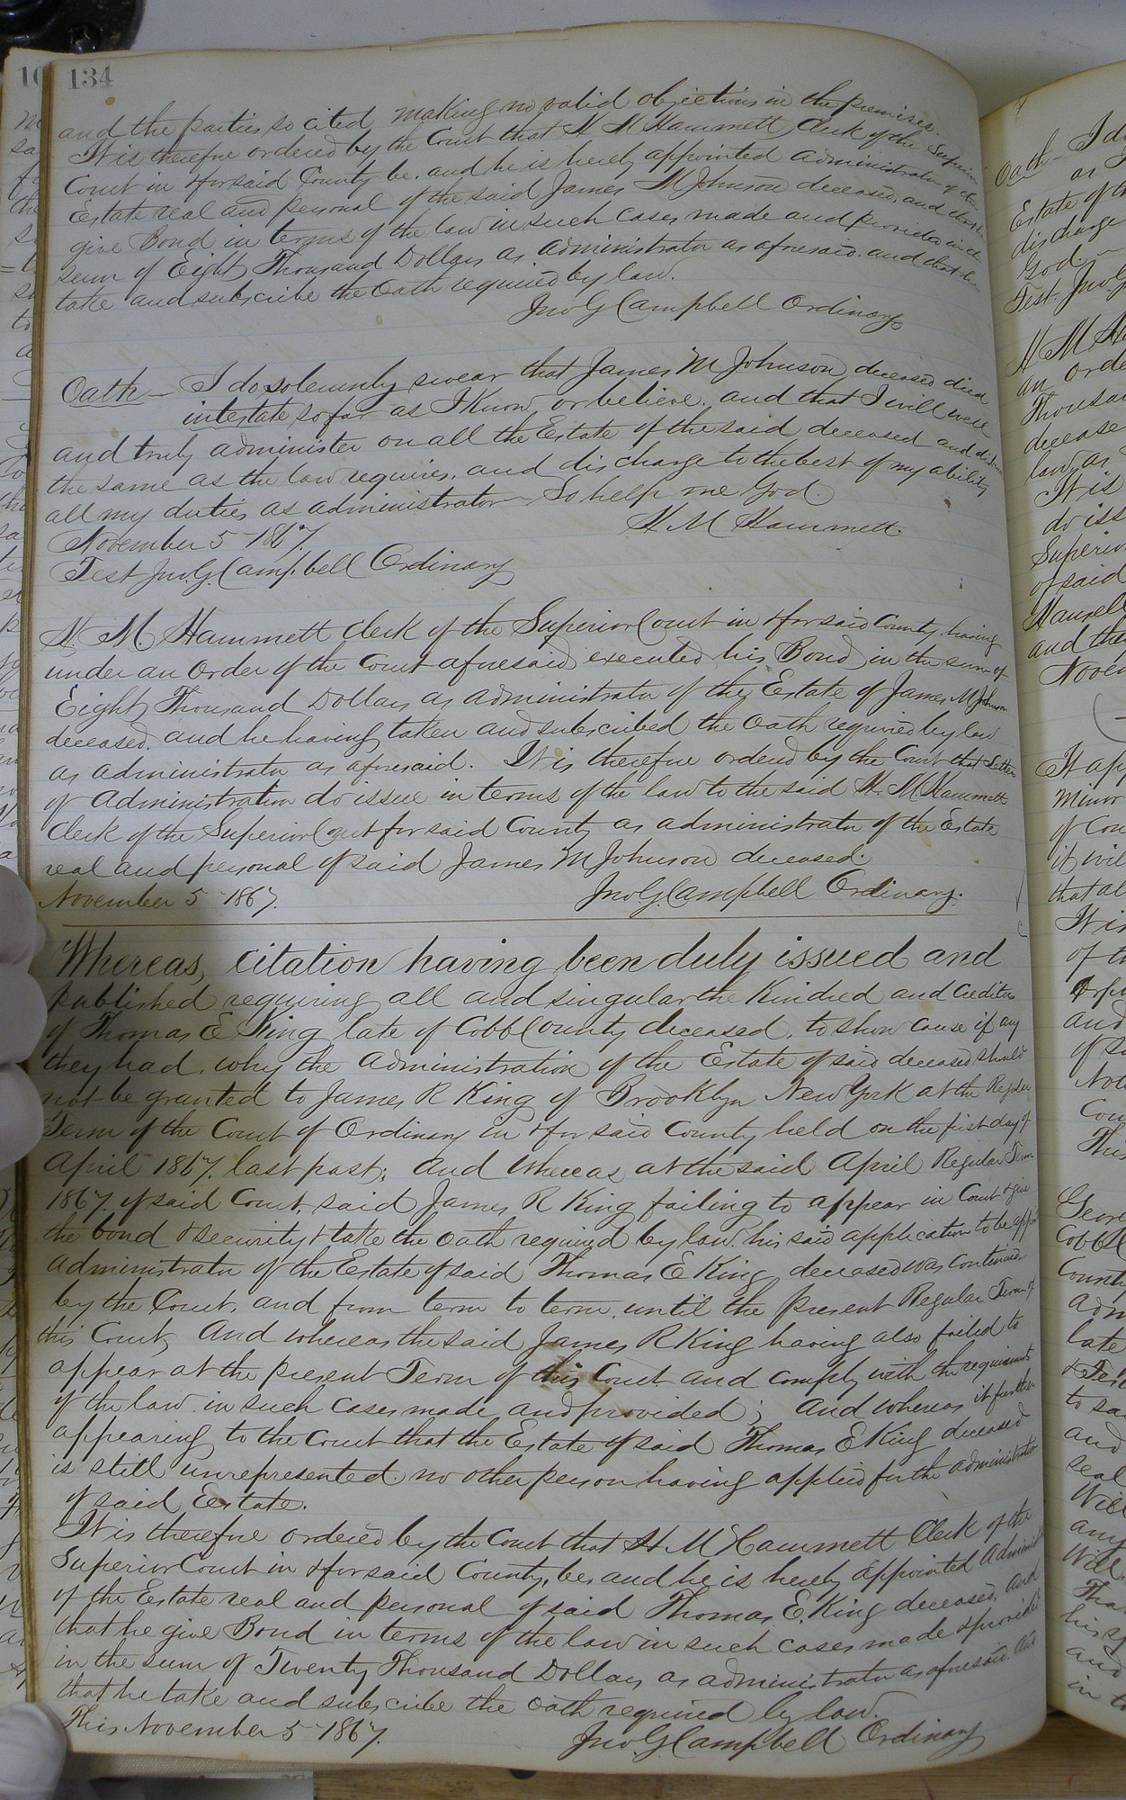 134
and the parties so cited making no valid objections in the premises.
It is therefore ordered by the Court that H M Hammett Clerk of the Superior
Court in & for said County be. and he is hereby appointed administrator of the
Estate real and personal of the said James M Johnson deceased, and that he
give Bond in terms of the law in such cases made and provided in the
sum of Eight Thousand Dollars as administrator as aforesaid. and that he
take and subscribe the oath required by law.
Jno G Campbell Ordinary
Oath - I do solemnly swear that James M Johnson deceased died
intestate so far as I know, or believe. and that I will well
and truly administer on all the Estate of the said deceased and
the same as the law requires, and discharge to the best of my ability
all my duties as administrator - So help me God.
November 5 - 1867.
H. M Hammett
Test Jno. G. Campbell Ordinary
H. M Hammett Clerk of the Superior Court in & for said County having
under an order of the Court aforesaid executed his Bond in the sum of
Eight Thousand Dollars as administrator of the Estate of James M Johnson
deceased. and he having taken and subscribed the oath required by law
as administrator as aforesaid. It is therefore ordered by the Court that Letters
of Administration do issue in terms of the law to the said H. M Hammett
Clerk of the Superior Court for said County as administrator of the Estate
real and personal of said James M Johnson deceased.
November 5 - 1867.
Jno G. Campbell Ordinary.
Whereas, citation having been duly issued and
published requiring all and singular the Kindred and Creditors
of Thomas E King late of Cobb County deceased. to show cause if any
they had. why the administration of the Estate of said deceased should
not be granted to James R King of Brooklyn New York at the Regular
Term of the Court of Ordinary in & for said County held on the first day of
April 1867. last past; and whereas at the said April Regular Term
1867. of said Court. said James R King failing to appear in Court & give
the bond & security & take the oath required by law. his said application to be
administrator of the Estate of said Thomas E King deceased was continued
by the Court. and from term to term until the present Regular Term of
this Court, And whereas the said James R King having also failed to
appear at the present Term of this Court and comply with the requirements
of the law in such cases made and provided; And whereas it further
appearing to the Court that the Estate of said Thomas E King deceased
is still unrepresented no other person having applied for the administration
of said Estate.
It is therefore ordered by the Court that H. M Hammett Clerk of the
Superior Court in & for said County, be, and he is hereby appointed
of the Estate real and personal of said Thomas E. King deceased, and
that he give Bond in terms of the law in such cases made & provided
in the sum of Twenty Thousand Dollars as administrator as aforesaid and
that he take and subscribe the oath required by law.
This November 5 - 1867.
Jno G. Campbell Ordinary